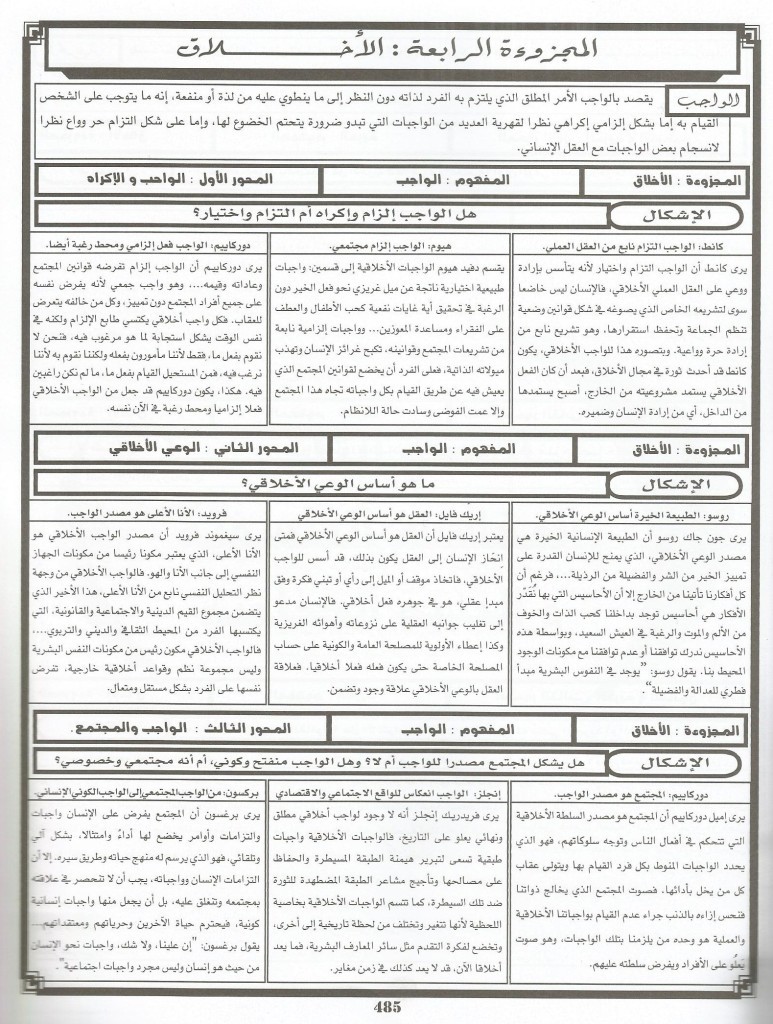 المجزوءة الرابعة : الأخلاق
الواجب
يقصد بالواجب الأمر المطلق الذي يلتزم به الفرد لذاته دون النظر إلى ما ينطوي عليه من لذة أو منفعة، إنه ما يتوجب على الشخص
القيام به إما بشكل إلزامي إكراهي نظرا لقهرية العديد من الواجبات التي تبدو ضرورة يتحتم الخضوع لها، وإما على شكل التزام حر وواع نظرا
لانسجام بعض الواجبات مع العقل الإنساني.
المجزوءة : الأخلاق
المفهوم : الواجب
المحور الأول : الواجب و الإكراه
الإشكال
هل الواجب إلزام وإكراه أم التزام واختيار؟
كانط: الواجب التزام نابع من العقل العملي.
يرى كانط أن الواجب التزام واختيار لأنه يتأسس بإرادة
ووعي على العقل العملي الأخلاقي، فالإنسان ليس خاضعا
سوى لتشريعه الخاص الذي يصوغه في شكل قوانين وضعية
تنظم الجماعة وتحفظ استقرارها، وهو تشريع نابع من
إرادة حرة وواعية. وبتصوره هذا للواجب الأخلاقي، يكون
كانط قد أحدث ثورة في مجال الأخلاق، فبعد أن كان الفعل
الأخلاقي يستمد مشروعيته من الخارج، أصبح يستمدها
من الداخل، أي من إرادة الإنسان وضميره.
هيوم: الواجب إلزام مجتمعي.
يقسم دفيد هيوم الواجبات الأخلاقية إلى قسمين: واجبات
طبيعية اختيارية ناتجة عن ميل غريزي نحو فعل الخير دون
الرغبة في تحقيق أية غايات نفعية كحب الأطفال والعطف
على الفقراء ومساعدة المعوزين... وواجبات إلزامية نابعة
من تشريعات المجتمع وقوانينه، تكبح غرائز الإنسان وتهذب
ميولاته الذاتية، فعلى الفرد أن يخضع لقوانين المجتمع الذي
يعيش فيه عن طريق القيام بكل واجباته تجاه هذا المجتمع
وإلا عمت الفوضى وسادت حالة اللانظام.
دوركايم: الواجب فعل إلزامي ومحط رغبة أيضا.
يرى دوركايم أن الواجب إلزام تفرضه قوانين المجتمع
وعاداته وقيمه.... وهو واجب جمعي لأنه يفرض نفسه
على جميع أفراد المجتمع دون تمييز، وكل من خالفه يتعرض
للعقاب. فكل واجب أخلاقي يكتسي طابع الإلزام ولكنه في
نفس الوقت يشكل استجابة لما هو مرغوب فيه، فنحن لا
نقوم بفعل ما، فقط لأننا مأمورون بفعله ولكننا نقوم به لأننا
نرغب فيه، فمن المستحيل القيام بفعل ما، ما لم نكن راغبين
فيه. هكذا، يكون دوركايم قد جعل من الواجب الأخلاقي
فعلا إلزاميا ومحط رغبة في الآن نفسه.
المجزوءة : الأخلاق
المفهوم : الواجب
المحور الثاني : الوعي الأخلاقي
الإشكال
ما هو أساس الوعي الأخلاقي؟
روسو: الطبيعة الخيرة أساس الوعي الأخلاقي.
يرى جون جاك روسو أن الطبيعة الإنسانية الخيرة هي
مصدر الوعي الأخلاقي، الذي يمنح للإنسان القدرة على
تمييز الخير من الشر والفضيلة من الرذيلة....، فرغم أن
كل أفكارنا تأتينا من الخارج إلا أن الأحاسيس التي بها نُقَدّر
الأفكار هي أحاسيس توجد بداخلنا كحب الذات والخوف
من الألم والموت والرغبة في العيش السعيد، وبواسطة هذه
الأحاسيس ندرك توافقنا أو عدم توافقنا مع مكونات الوجود
المحيط بنا. يقول روسو: "يوجد في النفوس البشرية مبدأ
فطري للعدالة والفضيلة".
إريك فايل: العقل هو أساس الوعي الأخلاقي
يعتبر إريك فايل أن العقل هو أساس الوعي الأخلاقي فمتى
انحاز الإنسان إلى العقل يكون بذلك، قد أسس للواجب
الأخلاقي، فاتخاذ موقف أو الميل إلى رأي أو تبني فكرة وفق
مبدإ عقلي، هو في جوهره فعل أخلاقي. فالإنسان مدعو
إلى تغليب جوانبه العقلية على نزوعاته وأهوائه الغريزية
وكذا إعطاء الأولوية للمصلحة العامة والكونية على حساب
المصلحة الخاصة حتى يكون فعله فعلا أخلاقيا. فعلاقة
العقل بالوعي الأخلاقي علاقة وجود وتضمن.
فرويد: الأنا الأعلى هو مصدر الواجب.
يرى سيغموند فرويد أن مصدر الواجب الأخلاقي هو
الأنا الأعلى، الذي يعتبر مكونا رئيسا من مكونات الجهاز
النفسي إلى جانب الأنا والهو. فالواجب الأخلاقي من وجهة
نظر التحليل النفسي نابع من الأنا الأعلى، هذا الأخير الذي
يتضمن مجموع القيم الدينية والاجتماعية والقانونية، التي
يكتسبها الفرد من المحيط الثقافي والديني والتربوي....
فالواجب الأخلاقي مكون رئيس من مكونات النفس البشرية
وليس مجموعة نظم وقواعد أخلاقية خارجية. تفرض
نفسها على الفرد بشكل مستقل ومتعال.
المجزوءة : الأخلاق
المفهوم : الواجب
المحور الثالث : الواجب والمجتمع.
الإشكال
هل يشكل المجتمع مصدرا للواجب أم لا؟ وهل الواجب منفتح وكوني، أم أنه مجتمعي وخصوصي؟
دوركايم: المجتمع هو مصدر الواجب.
يرى إميل دوركايم أن المجتمع هو مصدر السلطة الأخلاقية
التي تتحكم في أفعال الناس وتوجه سلوكاتهم، فهو الذي
يحدد الواجبات المنوط بكل فرد القيام بها ويتولى عقاب
كل من يخل بأدائها، فصوت المجتمع الذي يخالج ذواتنا
فنحس إزاءه بالذنب جراء عدم القيام بواجباتنا الأخلاقية
والعملية هو وحده من يلزمنا بتلك الواجبات، وهو صوت
يَعلُو على الأفراد ويفرض سلطته عليهم.
إنجلز: الواجب انعكاس للواقع الاجتماعي والاقتصادي
يرى فريدريك إنجلز أنه لا وجود لواجب أخلاقي مطلق
ونهائي يعلو على التاريخ، فالواجبات الأخلاقية واجبات
طبقية تسعى لتبرير هيمنة الطبقة المسيطرة والحفاظ
على مصالحها وتأجيج مشاعر الطبقة المضطهدة للثورة
ضد تلك السيطرة، كما تتسم الواجبات الأخلاقية بخاصية
اللحظية لأنها تتغير وتختلف من لحظة تاريخية إلى أخرى،
وتخضع لفكرة التقدم مثل سائر المعارف البشرية، فما يعد
أخلاقا الآن، قد لا يعد كذلك في زمن مغاير.
بركسون: من الواجب المجتمعي إلى الواجب الكوني الإنساني.
يرى برغسون أن المجتمع يفرض على الإنسان واجبات
والتزامات وأوامر يخضع لها أداءً وامتثالا، بشكل آلي
وتلقائي، فهو الذي يرسم له منهج حياته وطريق سيره. إلا أن
التزامات الإنسان وواجباته، يجب أن لا تنحصر في علاقته
بمجتمعه وتنغلق عليه، بل أن يجعل منها واجبات إنسانية
كونية، فيحترم حياة الآخرين وحرياتهم ومعتقداتهم...
يقول برغسون: "إن علينا، ولا شك، واجبات نحو الإنسان
من حيث هو إنسان وليس مجرد واجبات اجتماعية".
485